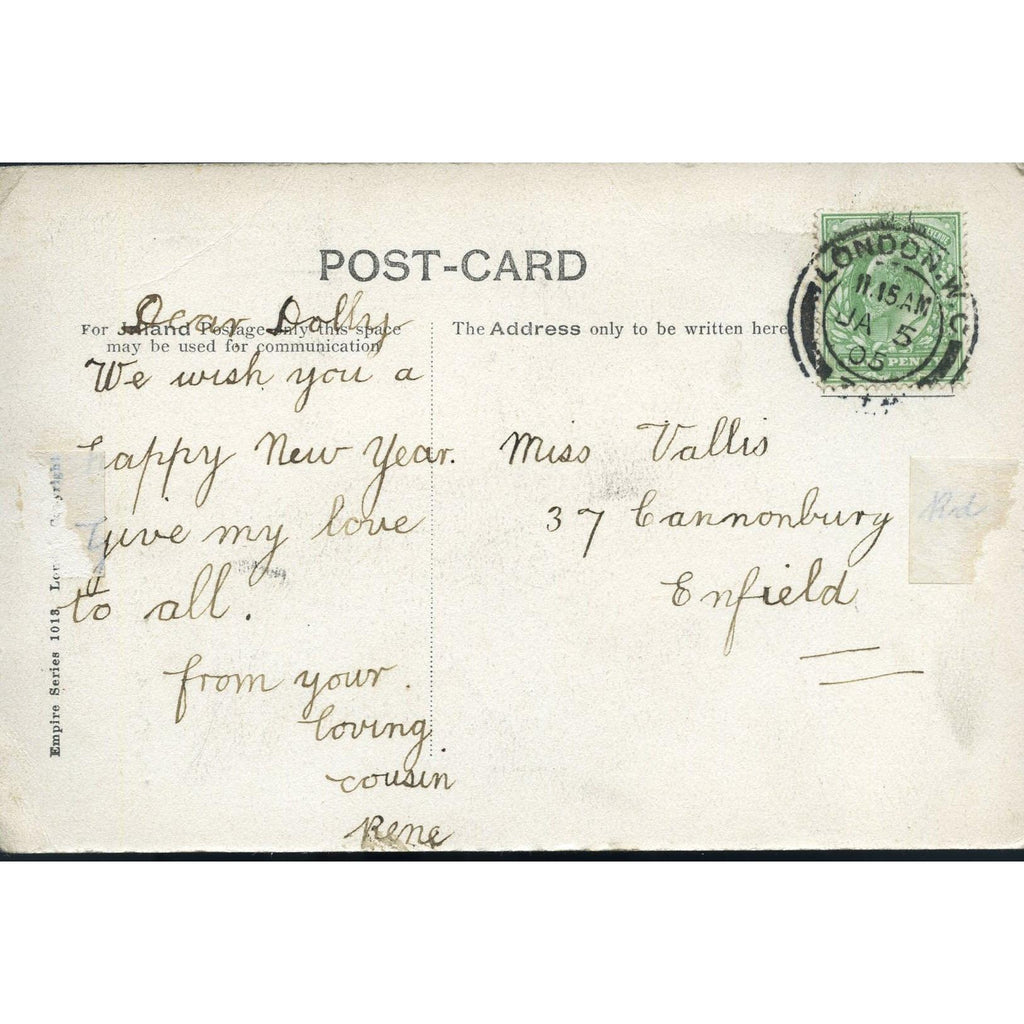 POST-CARD
For Inland Postage only this space
may be used for communication
The Address only to be written here
LONDON.W.C
11.15 AM
JA 5
05
Dear Dolly
We wish you a
happy New Year.
Give my love
to all.
from your
loving
cousin
Rene
Miss Vallis
37 Cannonbury Rd
Enfield
Empire Series 1013, London Copyright